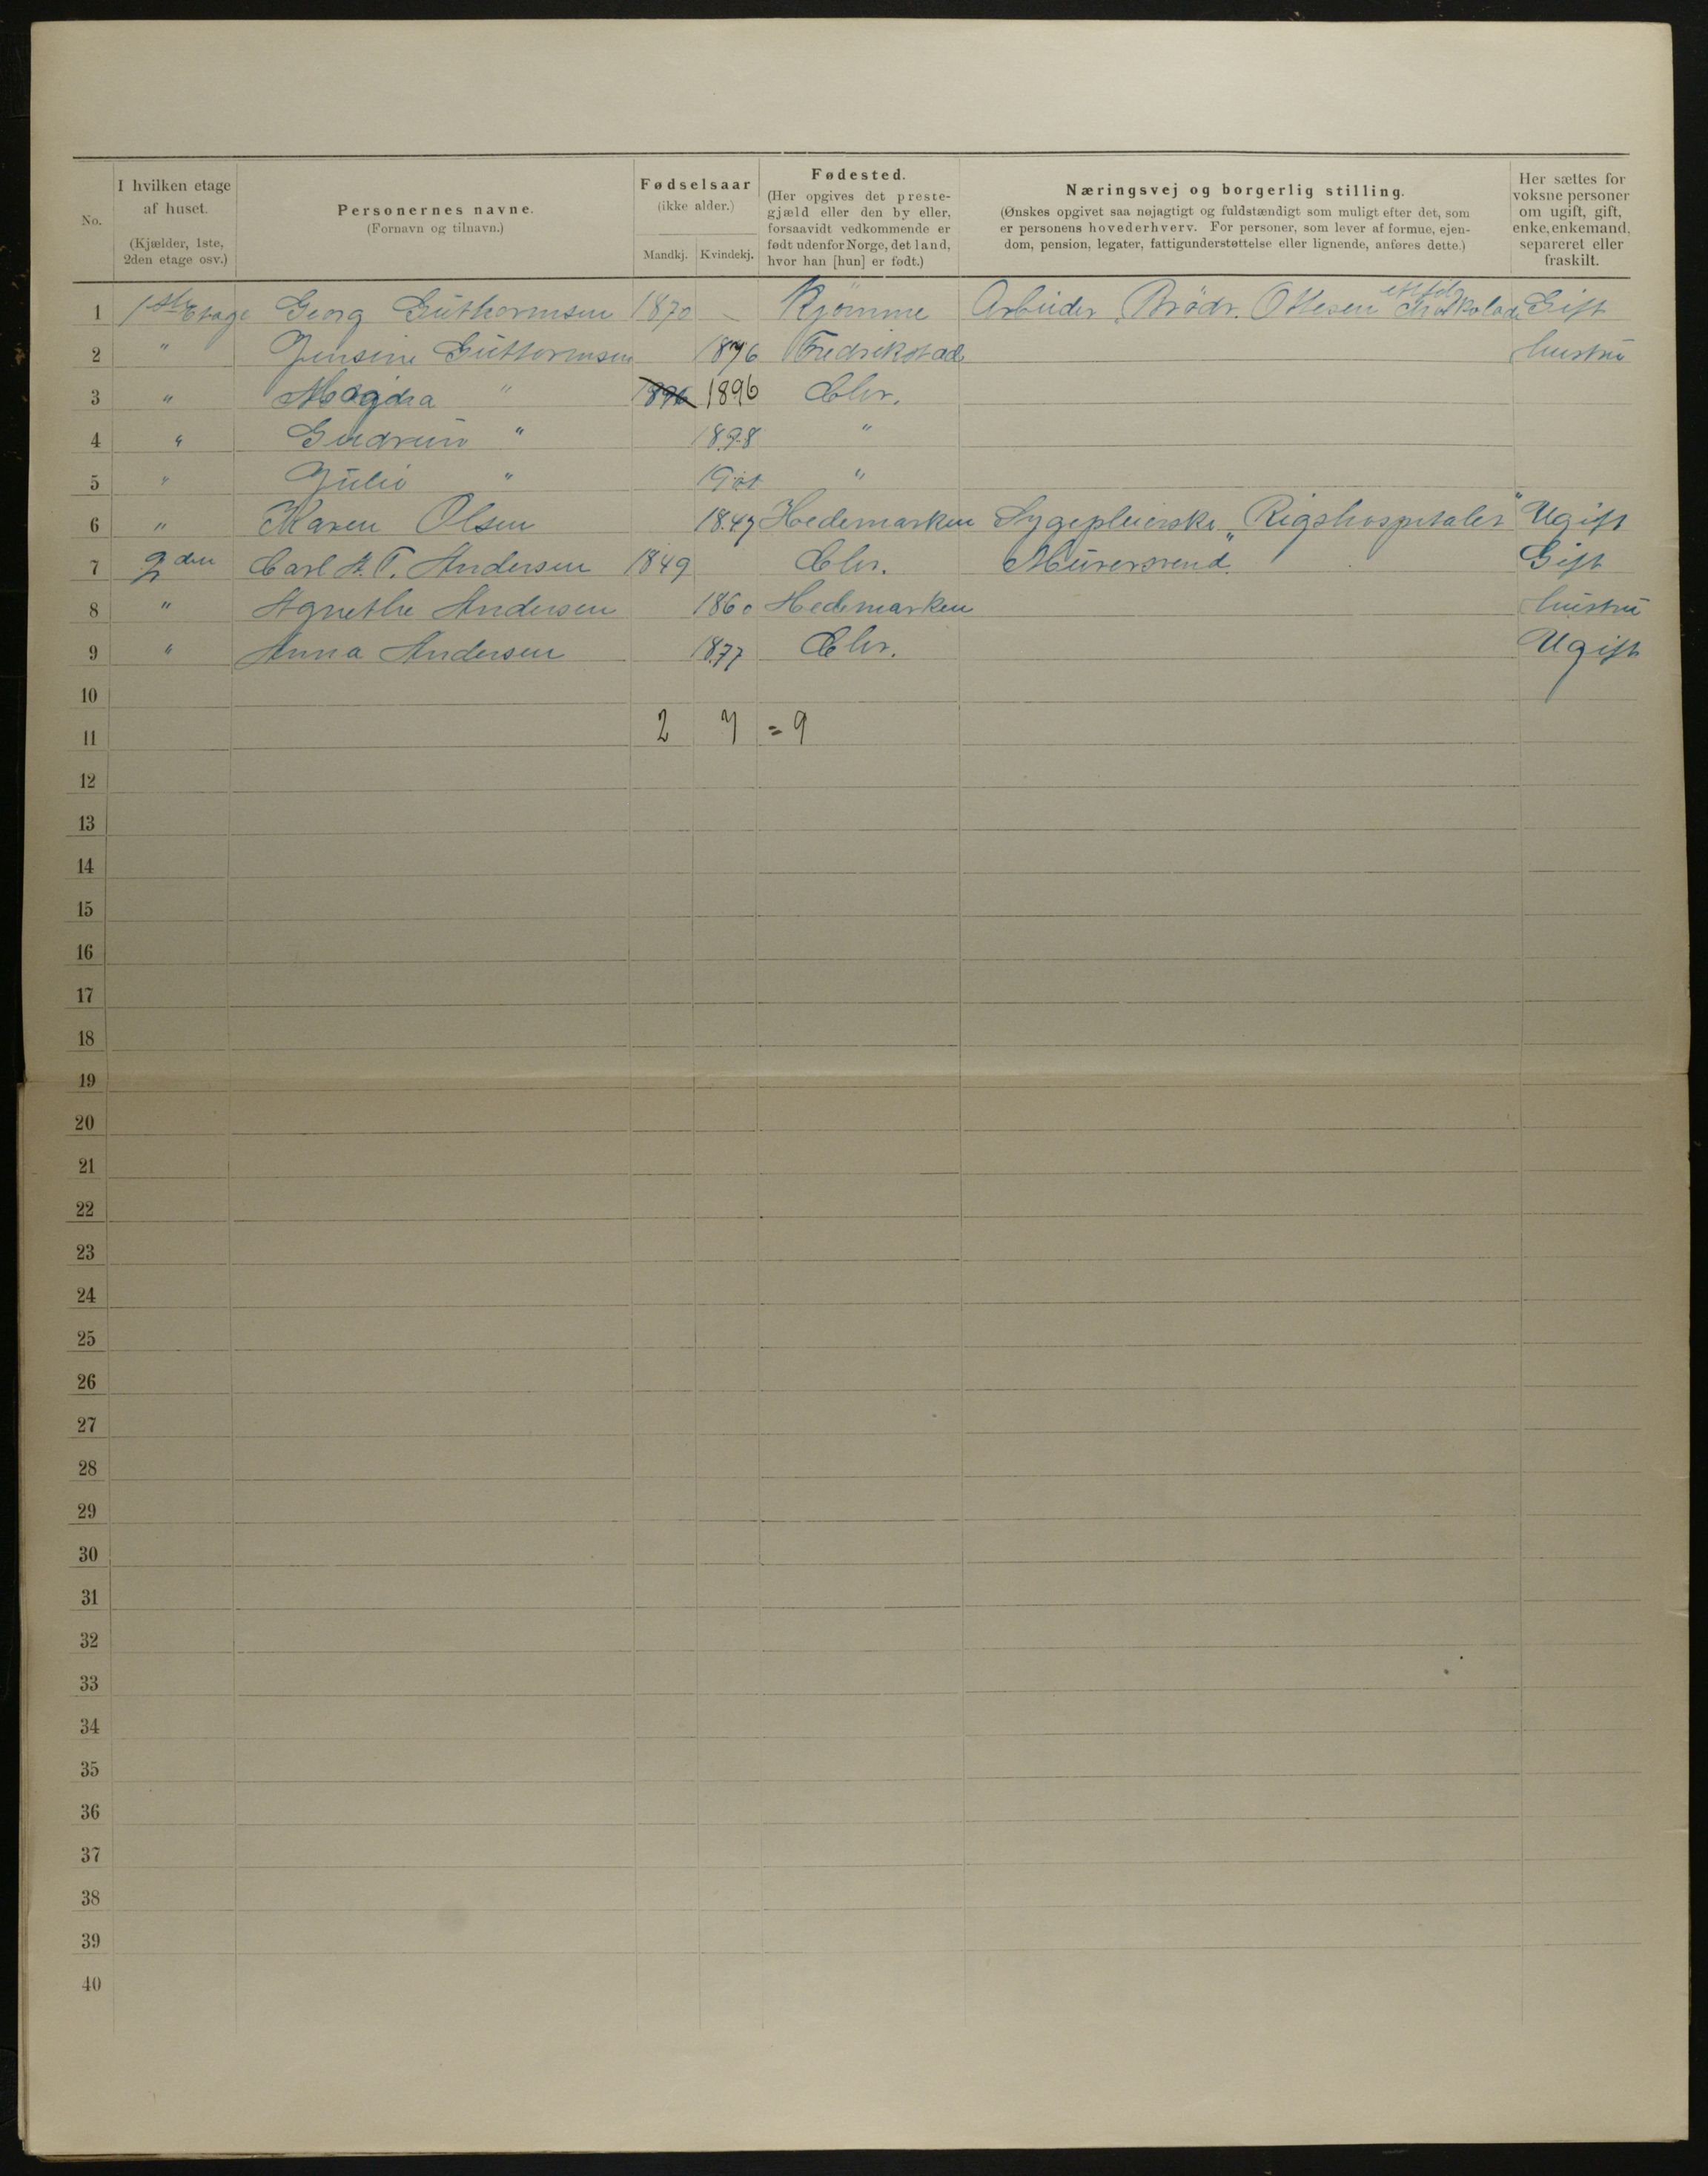 No.
I hvilken etage af huset.
(Kjælder, 1ste, 2den etage osv.)
Personernes navne.
(Fornavn og tilnavn.)
Fødselsaar
(ikke alder.)
Mandkj. Kvindekj.
Fødested.
(Her opgives det preste-
gjæld eller den by eller,
forsaavidt vedkommende er
født udenfor Norge, det land,
hvor han [hun] er født.)
Næringsvej og borgerlig stilling.
(Ønskes opgivet saa nøjagtigt og fuldstændigt som muligt efter det, som
er personens hovederhverv. For personer, som lever af formue, ejen-
dom, pension, legater, fattigunderstøttelse eller lignende, anføres dette.)
Her sættes for
voksne personer
om ugift, gift,
enke, enkemand,
separeret eller
fraskilt.
1 1ste Etage Georg Guthormsen 1870 – Kjømme Arbeider Brødr. Ottesen Gift
2 " Jensine Guttormsen 1876 Fredrikstad hustru
3 " Magda " 1896 1896 Chr.
4 " Gudrun " 1898 "
5 " " 1901 "
6 " Karen Olsen 1847 Hedemarken Sygepleierske „Rigshospitalet" Ugift
7 2den Carl A. T. Andersen 1849 Chr. Murersvend. Gift
8 " Agnethe Andersen 1860 Hedemarken hustru
9 " Anna Andersen 1877 Chr. Ugift
10
11 2 7 = 9
12
13
14
15
16
17
18
19
20
21
22
23
24
25
26
27
28
29
30
31
32
33
34
35
36
37
38
39
40